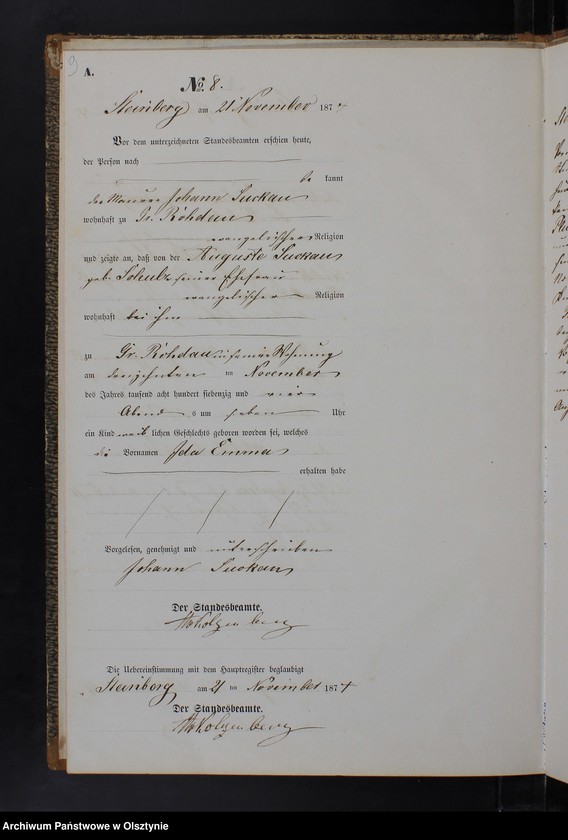 9
A.
No. 8.
Steinberg am 21 November 1874
Vor dem unterzeichneten Standesbeamten erschien heute,
der Person nach
be kannt
der Maurer Johann Suckau
wohnhaft zu Gr. Röhdau
evangelischer Religion
und zeigte an, daß von der Auguste Suckau
geb. Schulz seiner Ehefrau
evangelischer Religion
wohnhaft bei ihm
zu Gr. Röhdau in seiner Wohnung
am dreizehnten ten November
des Jahres tausend acht hundert siebenzig und vier
Abends um sieben Uhr
ein Kind weiblichen Geschlechts geboren worden sei, welches
die Vornamen Ida Emma
erhalten habe
Vorgelesen, genehmigt und unterschrieben
Johann Suckau
Der Standesbeamte.
Die Uebereinstimmung mit dem Hauptregister beglaubigt
Steinberg am 21 ten November 1874
Der Standesbeamte.
Archiwum Państwowe w Olsztynie